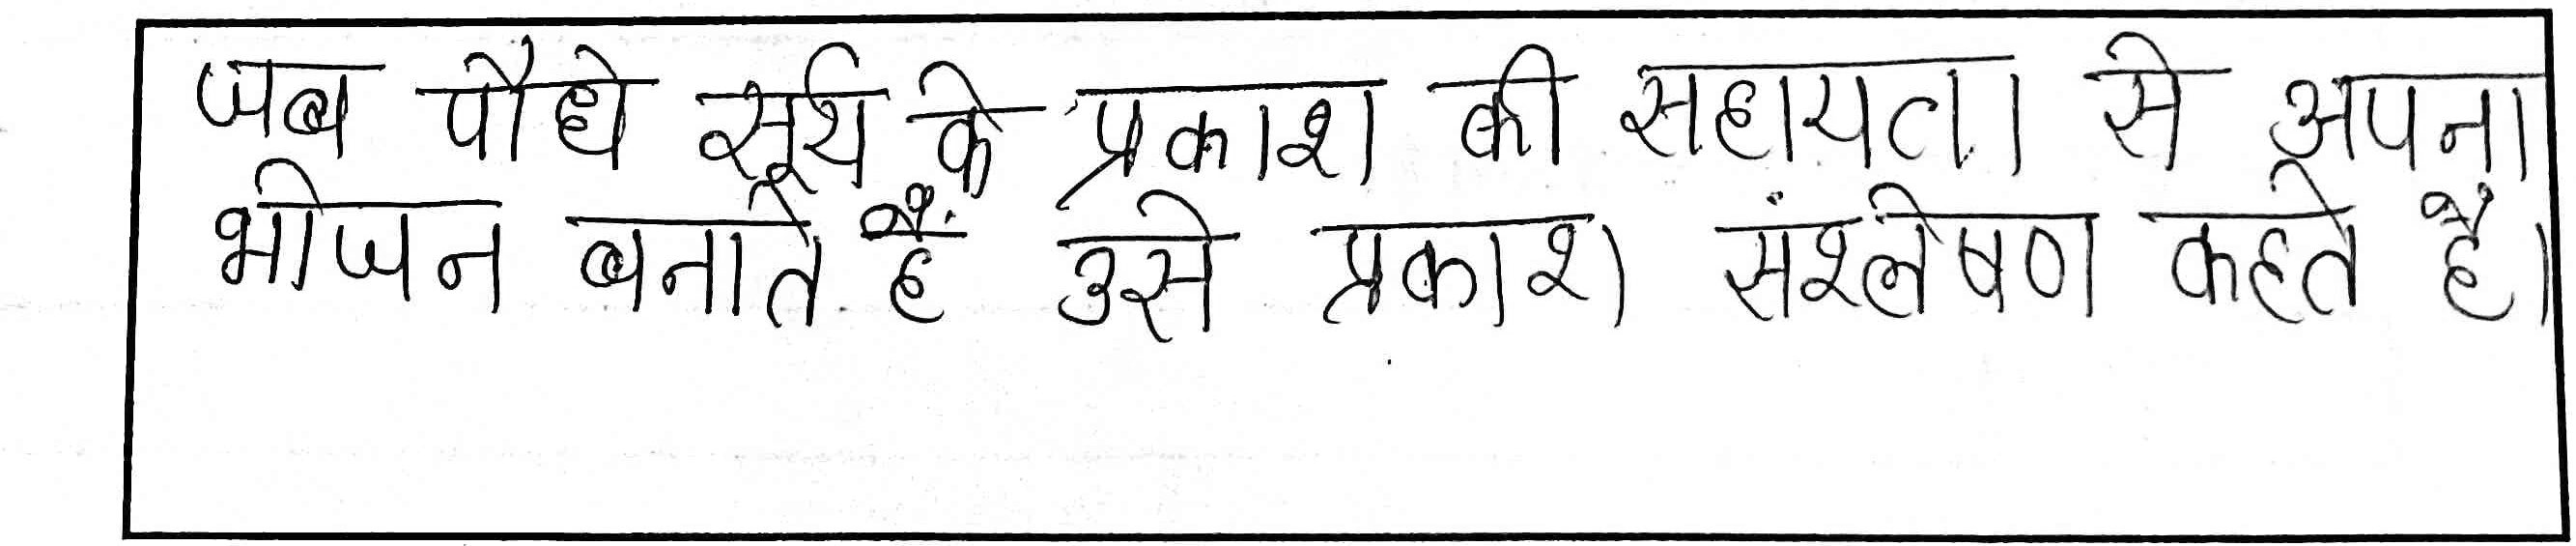 जब पौधे सूर्य के प्रकाश की सहायता से अपना
भोजन बनाते हैं उसे प्रकाश संश्लेषण कहते है।